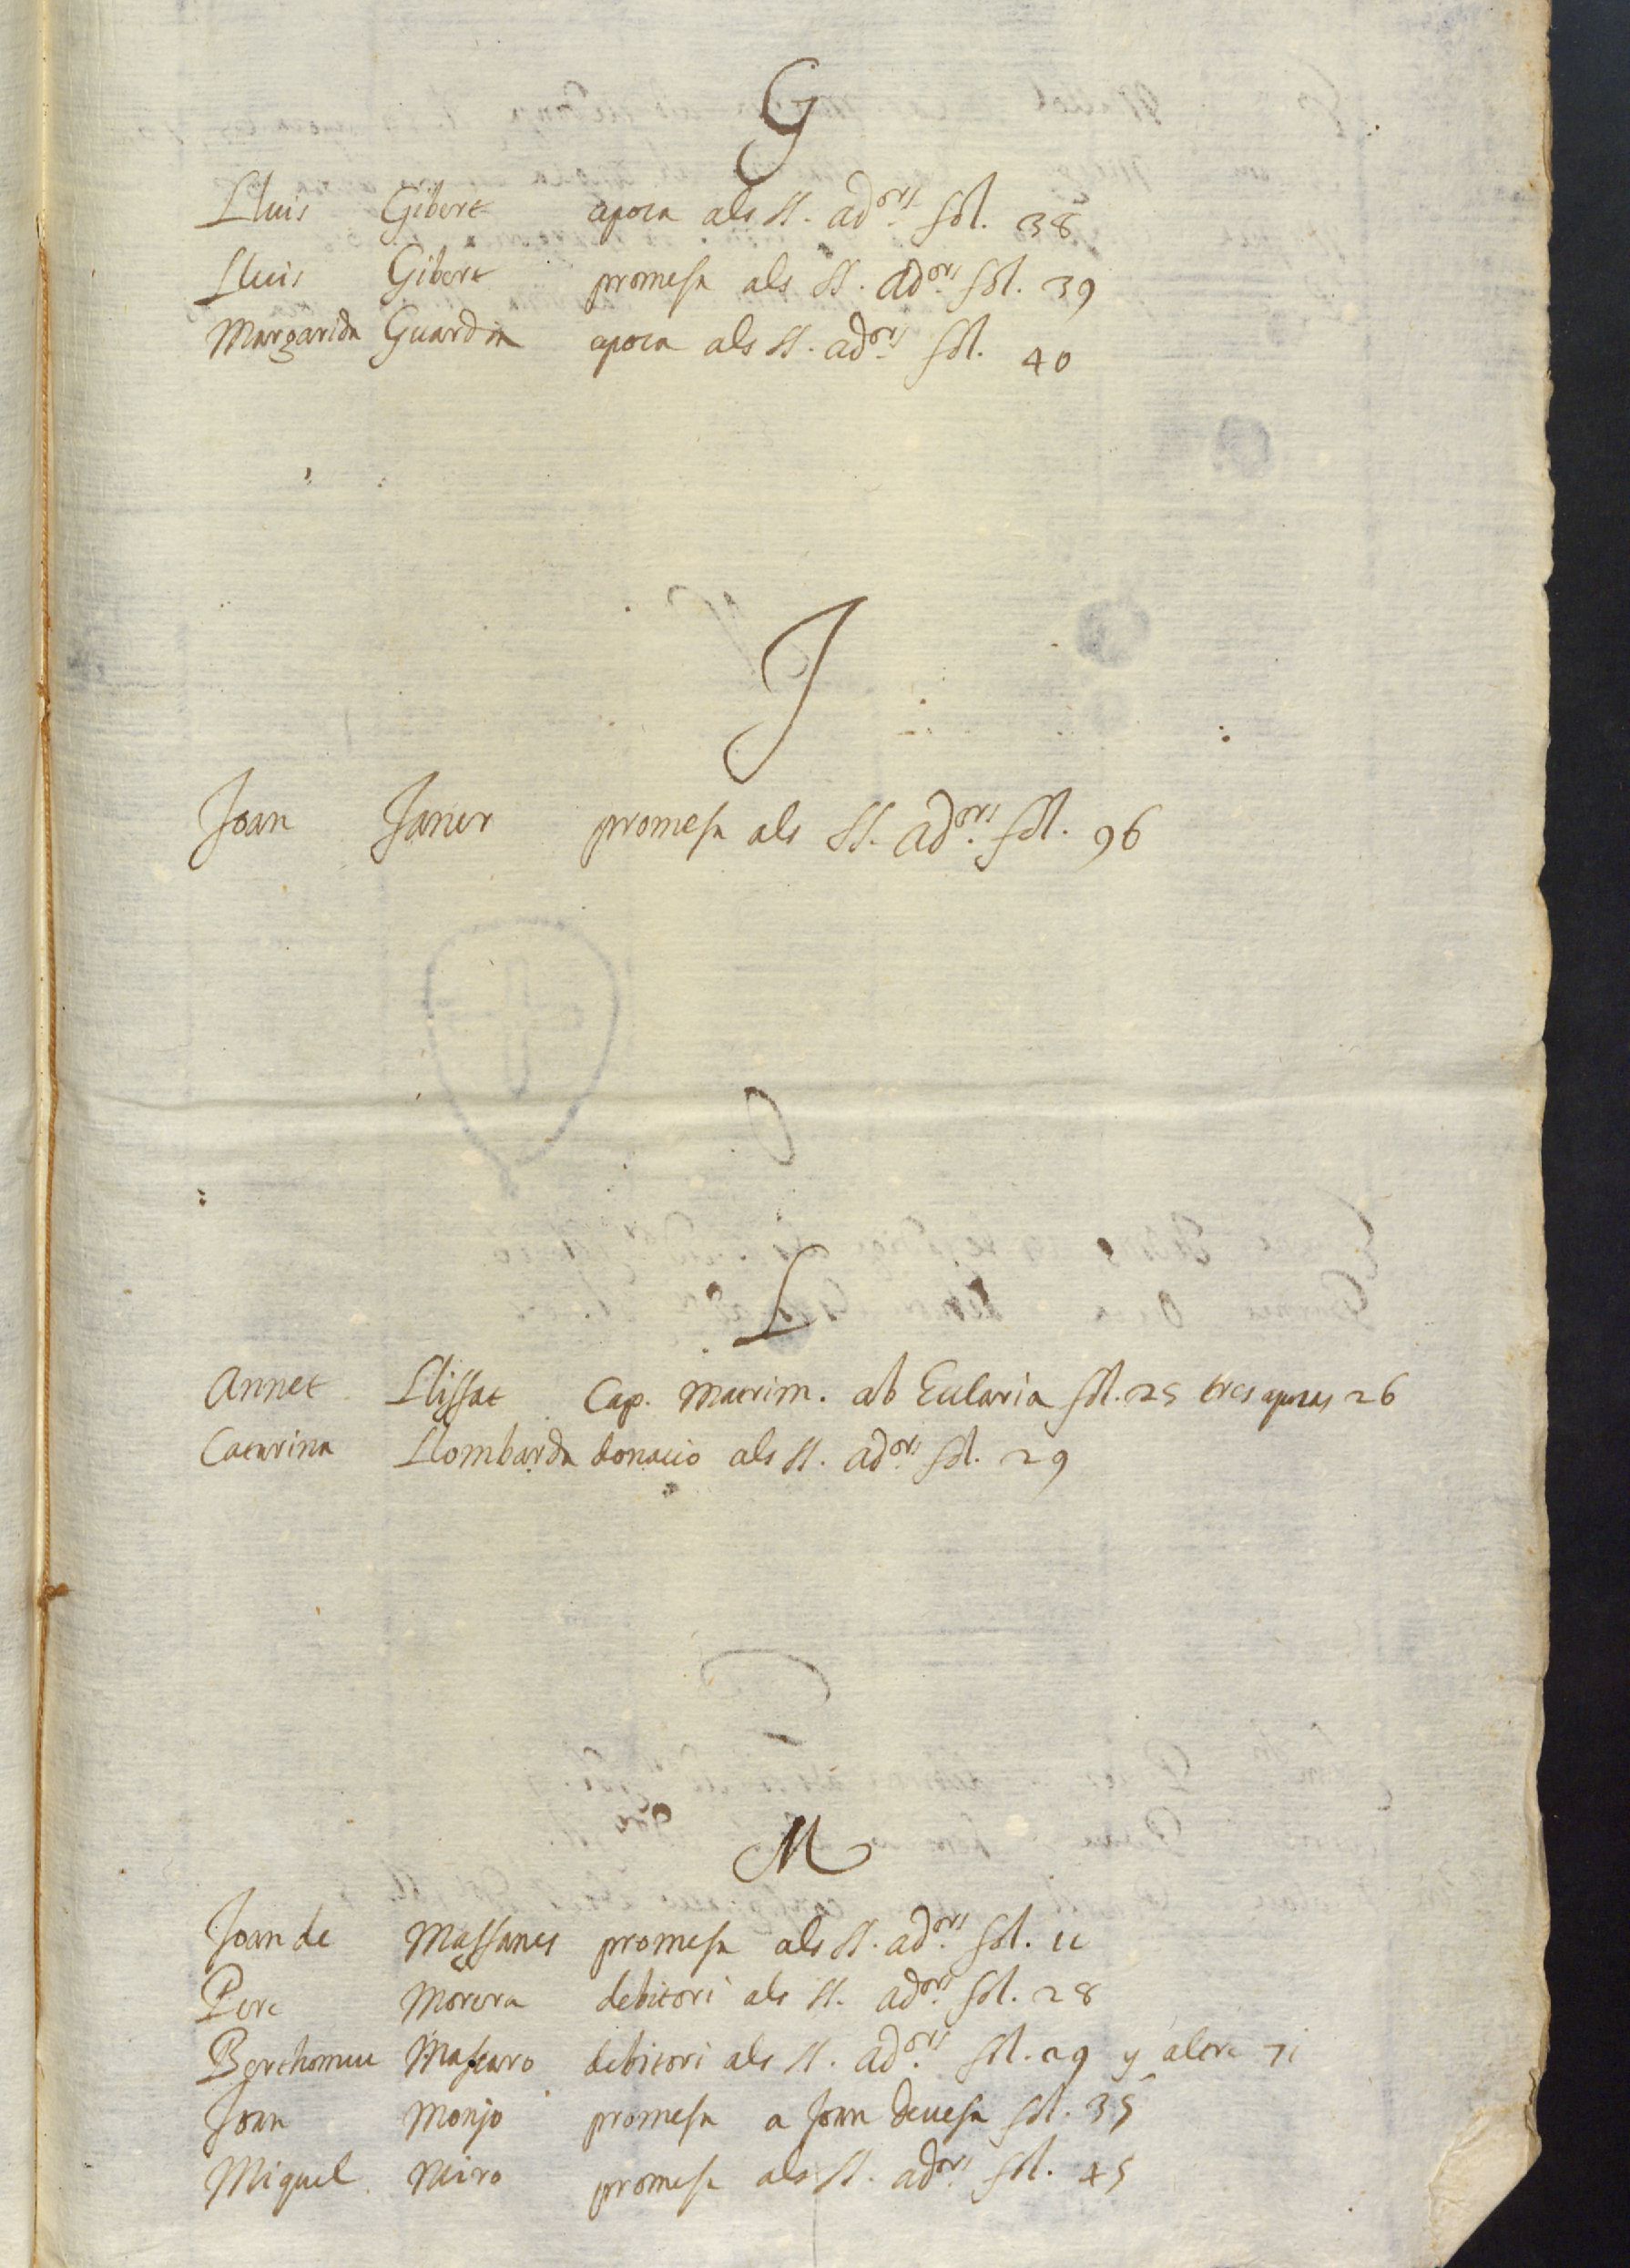 G
Lluis Gibert apoca als SS. adors. fol. 38
Lluis Gibert promesa als SS. adors. fol. 39
Margarida Guardia apoca als SS. adors. fol. 40
J
Joan Janer promesa als SS. adors. fol. 96
L
Annet Llissat Cap. Matrim. ab Eularia fol. 25 tres apocas 26
Catarina Llombarda donacio als SS. adors. fol. 29
M
Joan de Massanes promesa als SS. adors. fol. 11
Pere Morera debitori als SS. adors. fol. 28
Berthomeu Mascaro debitori als SS. adors. fol. 29 y altre 71
Joan Monjo promesa a Joan Devesa fol. 35
Miquel Miro promesa als SS. adors. fol. 45